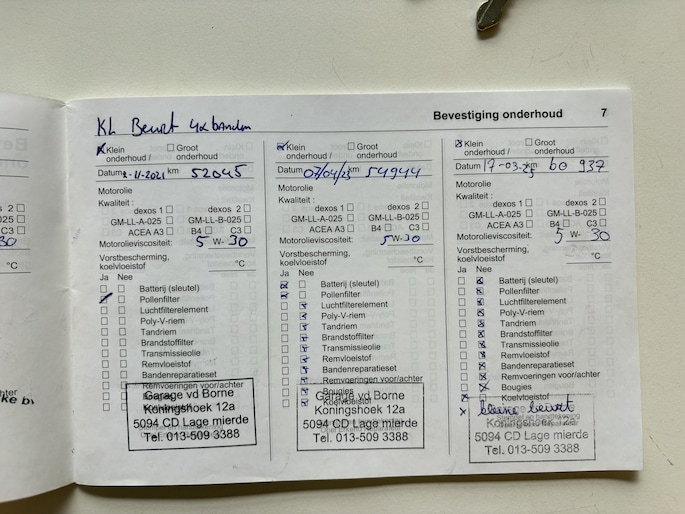 KL Beurt 4x banden
Bevestiging onderhoud 7
Klein onderhoud / Groot onderhoud
Datum 2-11-2021 km 52045
Motorolie
Kwaliteit :
dexos 1 dexos 2
GM-LL-A-025 GM-LL-B-025
ACEA A3 B4 C3
Motorolieviscositeit: 5 W- 30
Vorstbescherming,
koelvloeistof °C
Ja Nee
Batterij (sleutel)
Pollenfilter
Luchtfilterelement
Poly-V-riem
Tandriem
Brandstoffilter
Transmissieolie
Remvloeistof
Bandenreparatieset
Remvoeringen voor/achter
Garage vd Borne
Koningshoek 12a
5094 CD Lage mierde
Tel. 013-509 3388
Klein onderhoud / Groot onderhoud
Datum 07/04/23 km 54944
Motorolie
Kwaliteit :
dexos 1 dexos 2
GM-LL-A-025 GM-LL-B-025
ACEA A3 B4 C3
Motorolieviscositeit: 5 W- 30
Vorstbescherming,
koelvloeistof °C
Ja Nee
Batterij (sleutel)
Pollenfilter
Luchtfilterelement
Poly-V-riem
Tandriem
Brandstoffilter
Transmissieolie
Remvloeistof
Bandenreparatieset
Remvoeringen voor/achter
Bougies
Koelvloeistof
Garage vd Borne
Koningshoek 12a
5094 CD Lage mierde
Tel. 013-509 3388
Klein onderhoud / Groot onderhoud
Datum 17-03-25 km 60 937
Motorolie
Kwaliteit :
dexos 1 dexos 2
GM-LL-A-025 GM-LL-B-025
ACEA A3 B4 C3
Motorolieviscositeit: 5 W- 30
Vorstbescherming,
koelvloeistof °C
Ja Nee
Batterij (sleutel)
Pollenfilter
Luchtfilterelement
Poly-V-riem
Tandriem
Brandstoffilter
Transmissieolie
Remvloeistof
Bandenreparatieset
Remvoeringen voor/achter
Bougies
Koelvloeistof
x kleine beurt
Koningshoek
5094 CD Lage mierde
Tel. 013-509 3388